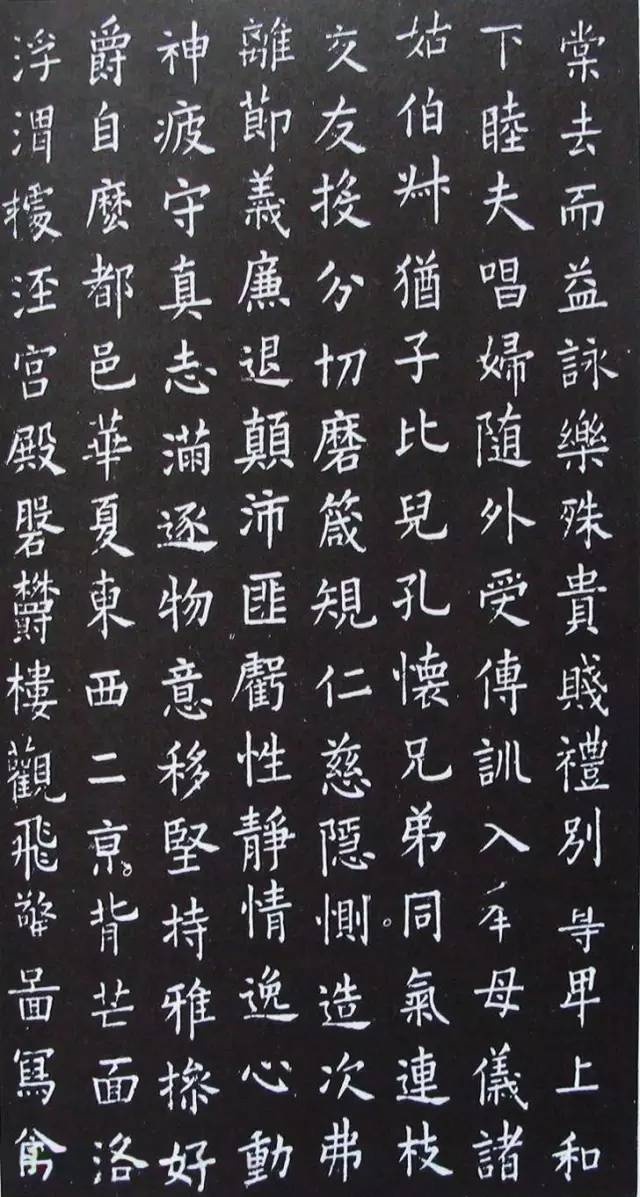 棠去而益詠樂殊貴賤禮別尊卑上和
下睦夫唱婦随外受傅訓入奉母儀諸
姑伯叔猶子比兒孔懷兄弟同氣連枝
交友投分切磨箴規仁慈隱惻造次弗
離節義廉退顛沛匪虧性靜情逸心動
神疲守真志滿逐物意移堅持雅操好
爵自縻都邑華夏東西二京背芒面洛
浮渭據涇宮殿磐鬱樓觀飛驚圖寫禽